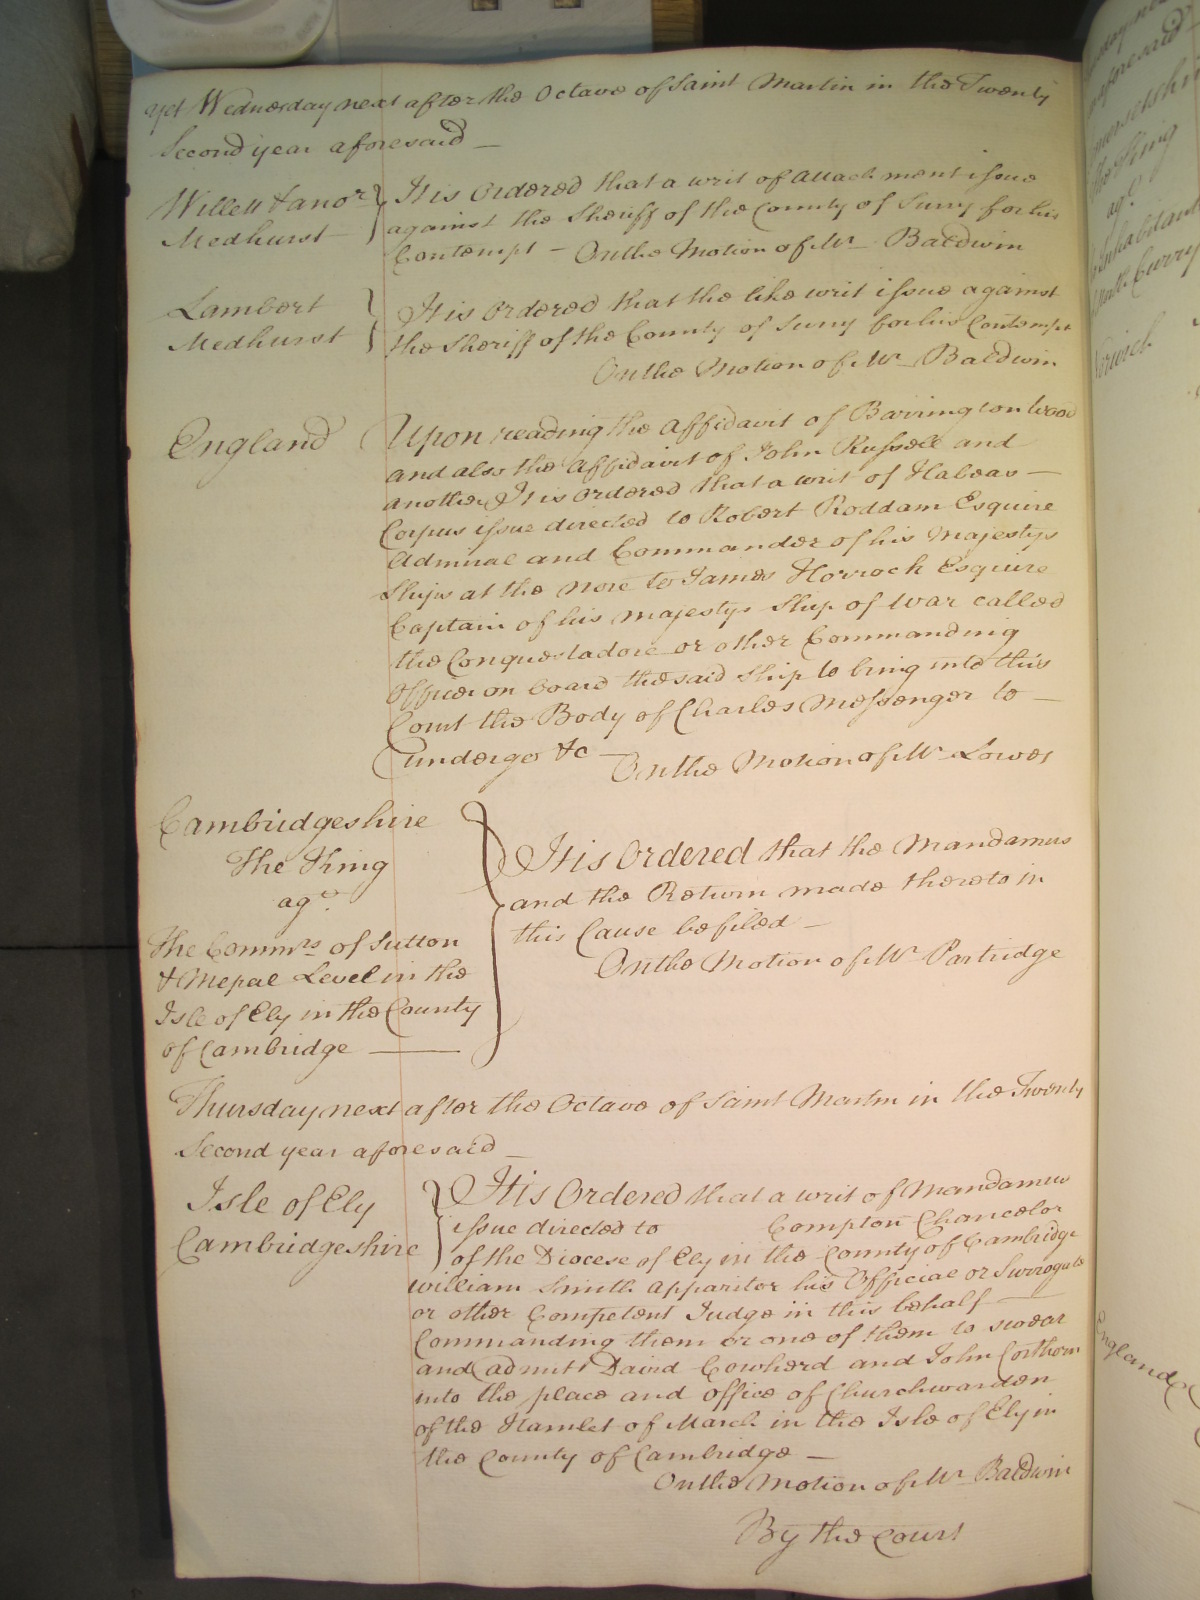 yet Wednesday next after the Octave of Saint Martin in the Twenty
Second year aforesaid —
Willett & anor
Medhurst
It is Ordered that a writ of attachment issue
against the Sheriff of the County of Surry for his
Contempt — On the Motion of Mr Baldwin
Lambert
Medhurst
It is Ordered that the like writ issue against
the Sheriff of the County of Surry for his Contempt
On the Motion of Mr Baldwin
England
Upon reading the Affidavit of Barrington Wood
and also the Affidavit of John Russell and
another It is Ordered that a writ of Habeas —
Corpus issue directed to Robert Roddam Esquire
Admiral and Commander of his Majestys
Ships at the Nore to James Horrock Esquire
Captain of his Majestys Ship of War called
the Conquestadore or other Commanding
Officer on board the said Ship to bring into this
Court the Body of Charles Messenger to —
undergo &c —
On the Motion of Mr Lowes
Cambridgeshire
The King
agt
The Commrs of Sutton
& Mepal Level in the
Isle of Ely in the County
of Cambridge —
It is Ordered that the Mandamus
and the Return made thereto in
this Cause be filed —
On the Motion of Mr Partridge
Thursday next after the Octave of Saint Martin in the Twenty
Second year aforesaid —
Isle of Ely
Cambridgeshire
It is Ordered that a writ of Mandamus
issue directed to Compton Chancelor
of the Diocese of Ely in the County of Cambridge
William Smith Apparitor his Official or Surrogate
or other Competent Judge in this behalf —
Commanding them or one of them to swear
and admit David Cowherd and John Corthorn
into the place and office of Churchwarden
of the Hamlet of March in the Isle of Ely in
the County of Cambridge —
On the Motion of Mr Baldwin
By the Court
aforesaid
The King
agt
Inhabitants
Norwich
England